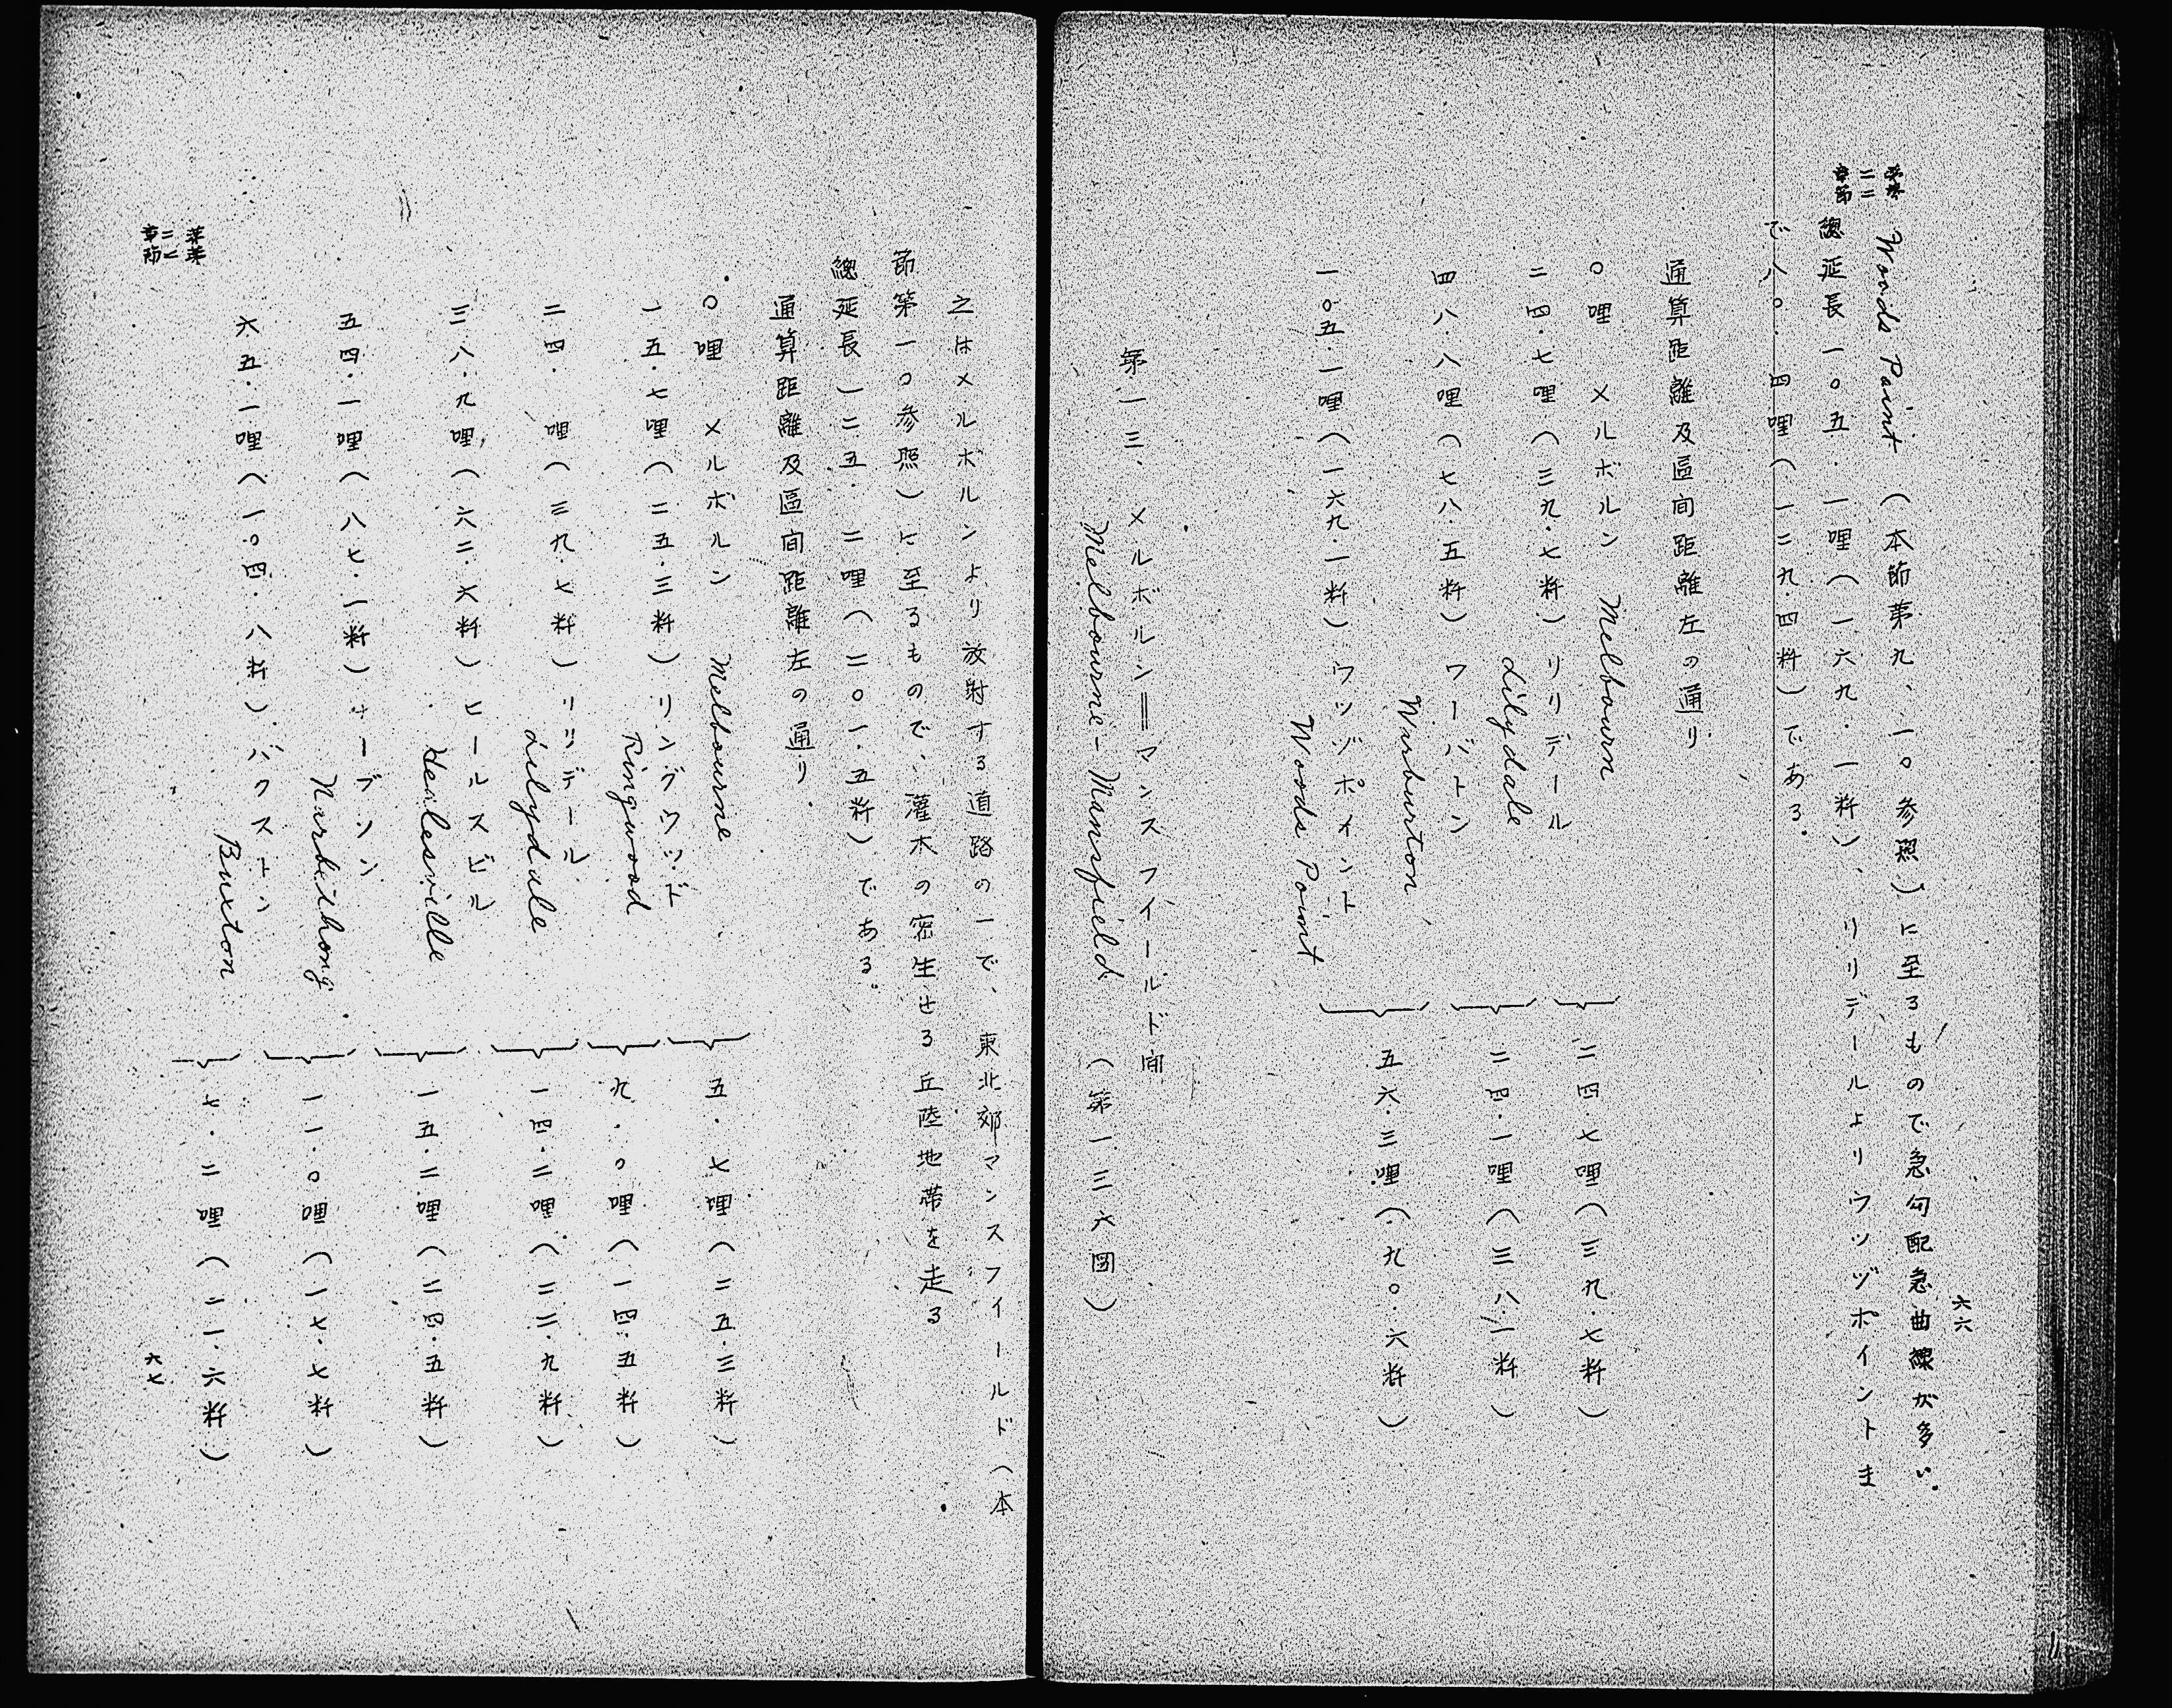 六六
第二章
第二節
Woods Point (本節第九、一〇参照)に至るもので急勾配急曲線が多い.
總延長一〇五.一哩(一六九.一粁)、リリデールよりウッヅポイントま
で八〇.四哩(一二九.四粁)である.
通算距離及區间距離左の通り
〇哩 メルボルン Melbourn
二四.七哩(三九.七粁) リリデール
Lilydale
四八.八哩(七八.五粁) ワーバトン
Warburton
一〇五.一哩(一六九.一粁) ウッヅポイント
Woods Point
二四.七哩(三九.七粁)
二四.一哩(三八.一粁)
五六.三哩(九〇.六粁)
第一三、メルボルン=マンスフイールド间
Melbourne-Mansfield (第一三六図)
之はメルボルンより放射する道路の一で、東北郊マンスフイールド(本
節第一〇参照)に至るもので、灌木の密生せる丘陸地帯を走る
總延長一二五.二哩(二〇一.五粁)である。
通算距離及區间距離左の通り.
〇哩 メルボルン Melbourne
一五.七哩(二五.三粁)リングウッド
Ringwood
二四. 哩(三九.七粁)リリデール
Lilydale
三八.九哩(六二.六粁)ヒールスビル
Healesville
五四.一哩(八七.一粁)ナーブソン
Narbethong
六五.一哩(一〇四.八粁).バクストン
Buxton
五.七哩(二五.三粁)
九.〇哩(一四.五粁)
一四.二哩(二二.九粁)
一五.二哩(二四.五粁)
一一.〇哩(一七.七粁)
七.二哩(一一.六粁)
第二章
第二節
六七